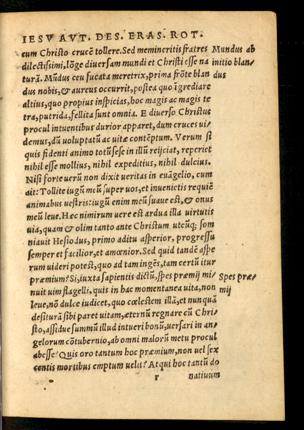 IESV AVT. DES. ERAS. ROT.
cum Christo crucē tollere. Sed memineritis fratres
dilectissimi, lōge diuersam mundi et Christi esse na
turā. Mūdus ceu fucata meretrix, prima frōte blan
dus nobis, & aureus occurrit, postea quo īgrediare
altius, quo propius inspicias, hoc magis ac magis te
tra, putrida, fellita sunt omnia. E diuerso Christus
procul intuentibus durior apparet, dum cruces ui=
demus, dū uoluptatū ac uitæ contēptum. Verum si
quis fidenti animo totū sese in illū reijciat, reperiet
nihil esse mollius, nihil expeditius, nihil dulcius.
Nisi forte uerū non dixit ueritas in euāgelio, cum
ait: Tollite iugū meū super uos, et inuenietis requiē
animabus uestris: iugū enim meū suaue est, & onus
meū leue. Hæc nimirum uere est ardua illa uirtutis
uia, quam & olim tanto ante Christum utcūq; som
niauit Hesiodus, primo aditu asperior, progressu
semper et facilior, et amœnior. Sed quid tandē aspe
rum uideri potest, quo ad tam ingēs, tam certū itur
præmium? Si, iuxta sapientis dictū, spes præmij mi=
nuit uim flagelli, quis in hac momentanea uita, non
leue, nō dulce iudicet, quo cœlestem illā, et nunquā
desiturā sibi paret uitam, æternū regnare cū Chri=
sto, assidue summū illud intueri bonū, uersari in an=
gelorum cōtubernio, ab omni malorū metu procul
abesse? Quis oro tantum hoc præmium, non uel sex
centis mortibus emptum uelit? Atqui hoc tantū do
r
natiuum
Mundus ab
initio blan=
dus
Spes præ=
mij